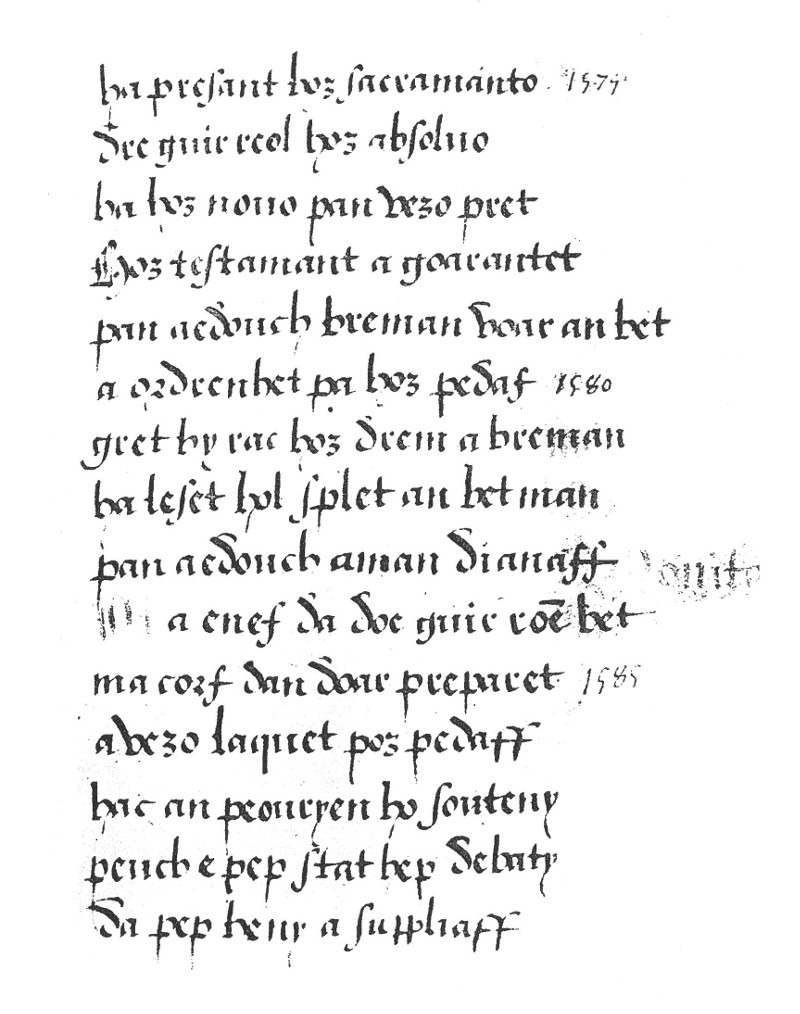 ha presant hoz sacramanto 1575
dre guir reol hoz absoluo
ha hoz nouo pan vezo pret
Hoz testamant a goarantet
pan aedouch breman voar an bet
a ordrenhet pa hoz pedaf 1580
gret hy rac hoz drem a breman
ha leset hol splet an bet man
pan aedouch aman dianaff
a enef da doe guir roe bet
ma corf dan doar preparet 1585
a vezo laquet poz pedaff
hac an peouryen ho souteny
peuch e pep stat hep debaty
da pep heny a suppliaff